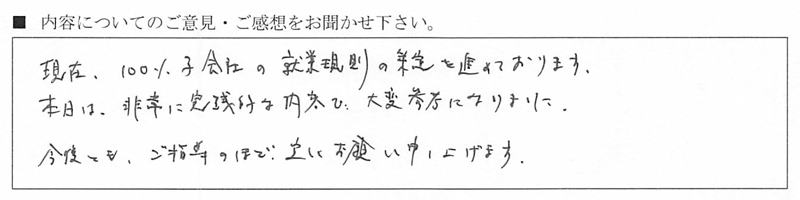 ■ 内容についてのご意見・ご感想をお聞かせ下さい。
現在、100%子会社の就業規則の策定を進めております。
本日は、非常に実践的な内容で、大変参考になりました。
今後とも、ご指導のほど、宜しくお願い申し上げます。